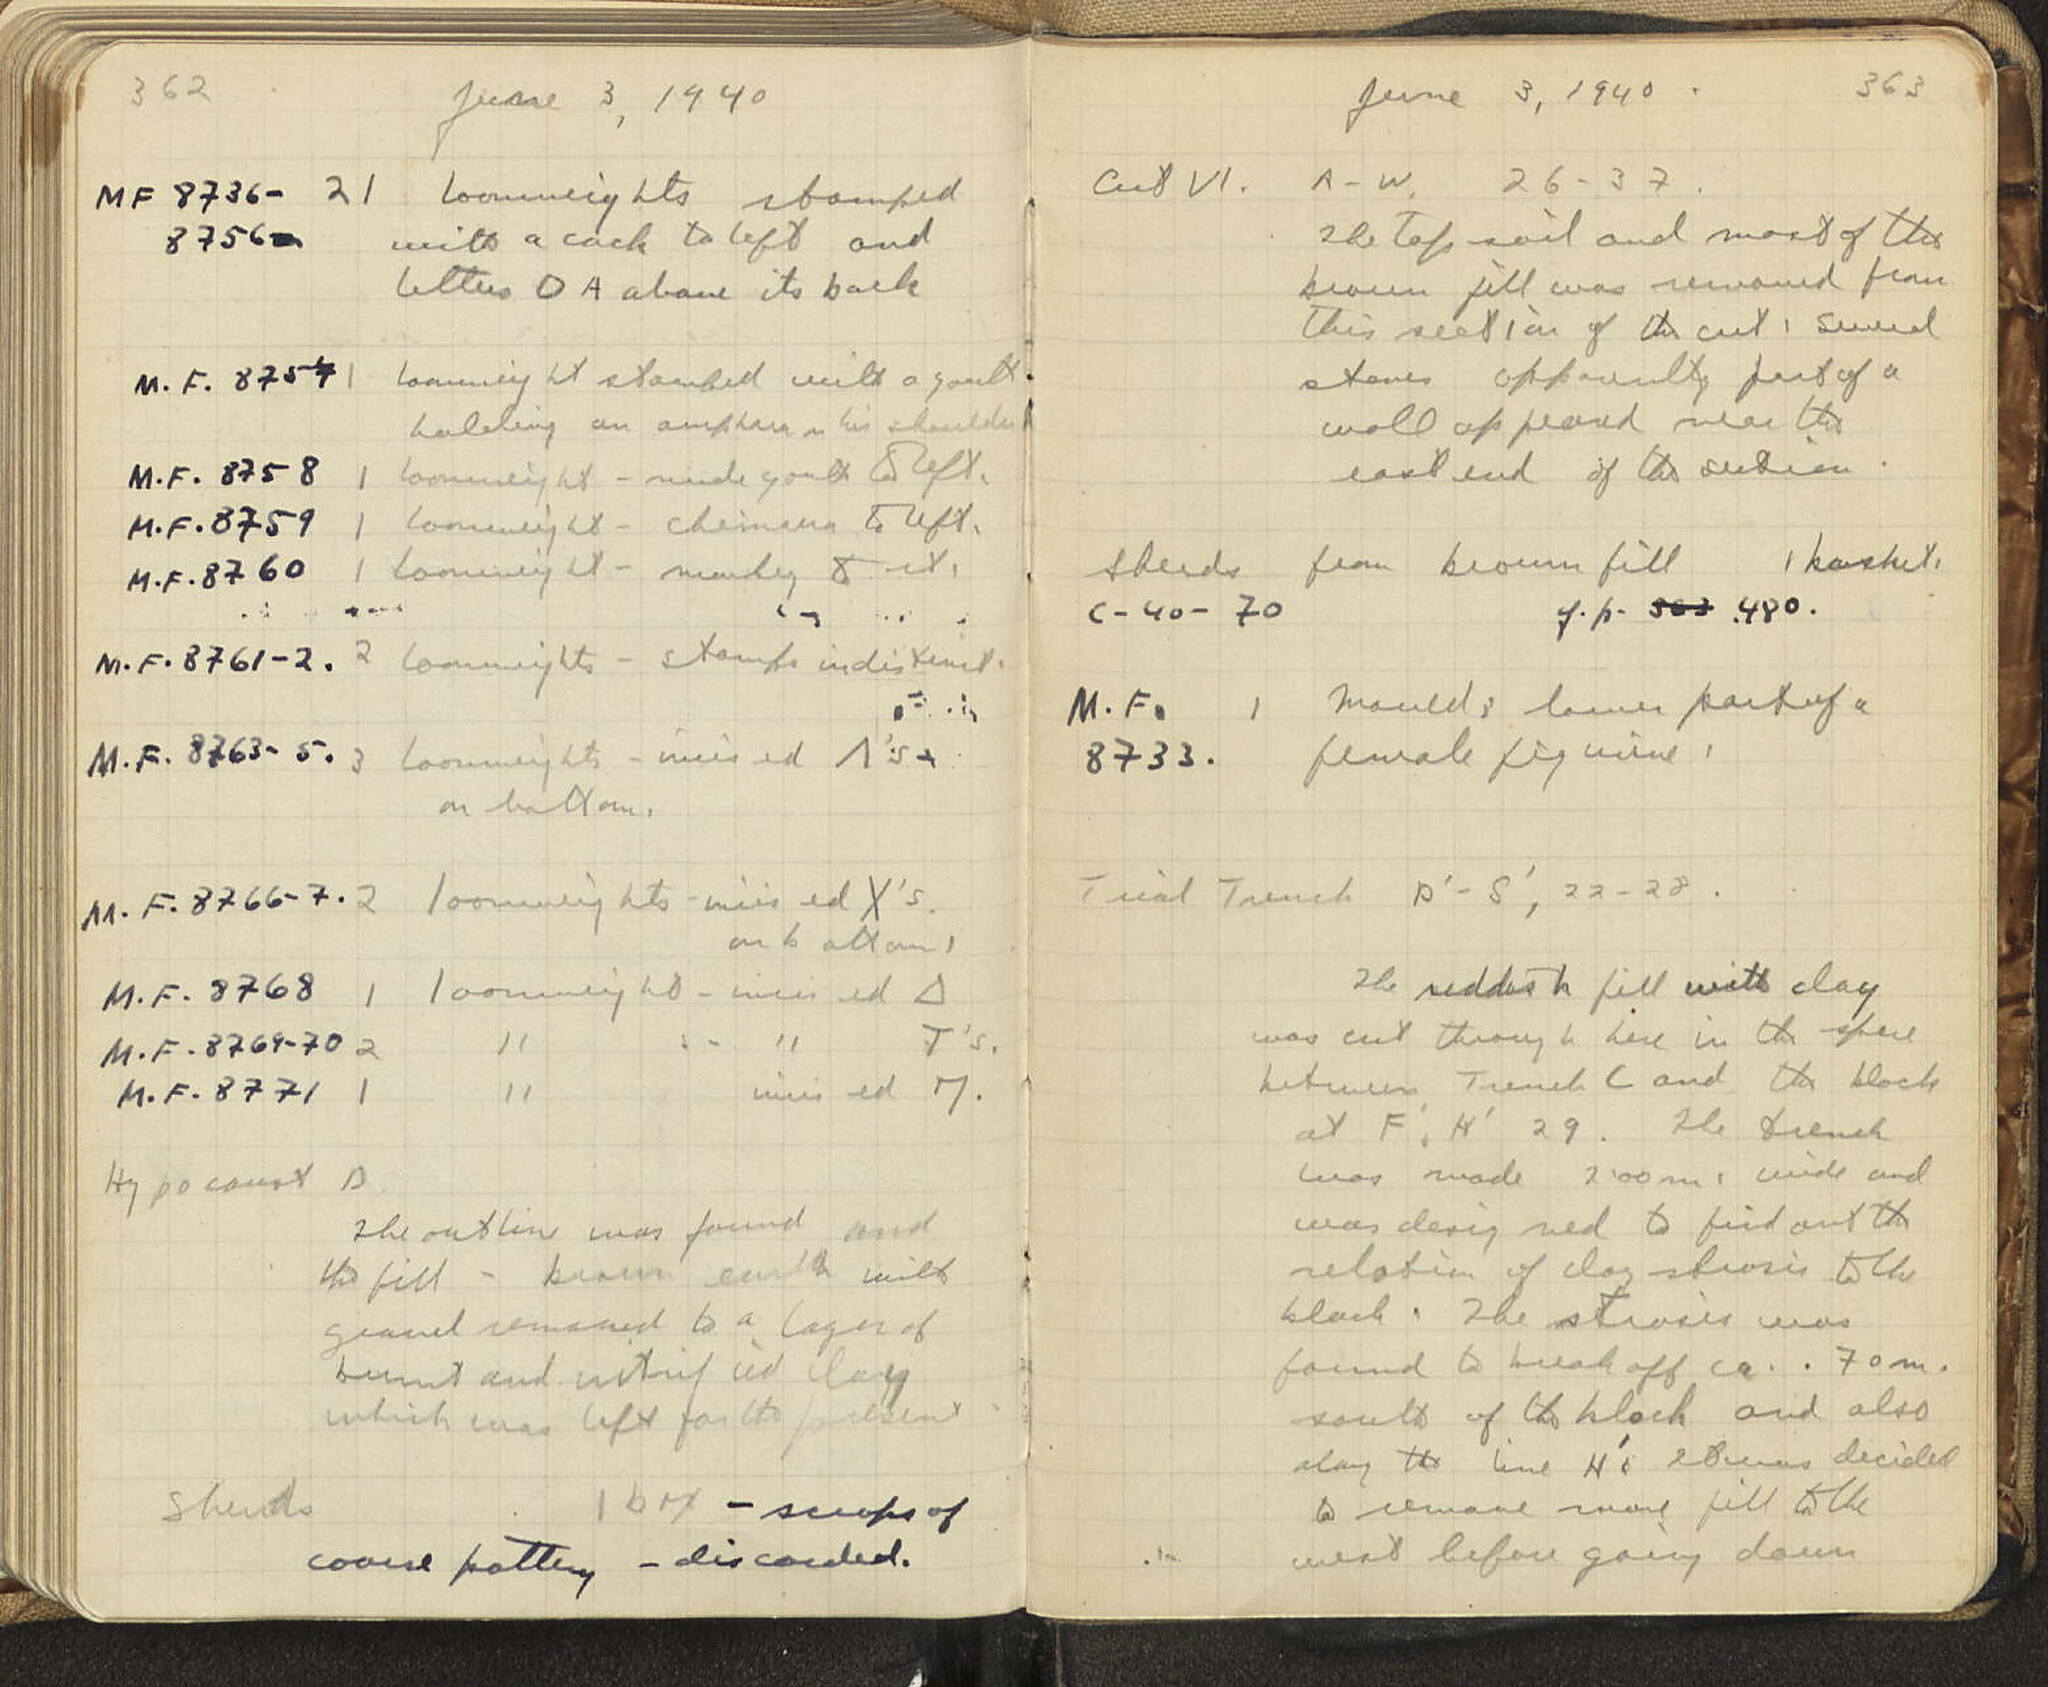 362
June 3, 1940
MF 8736- 21 loomweights stamped
8756 with a cock to left and
letters O A above its back
M. F. 8757 1 loomweight stamped with a youth
holding an amphora on his shoulder
M.F. 8758 1 loomweight - nude youth to left.
M.F. 8759 1 loomweight - chimaera to left.
M.F. 8760 1 loomweight - monkey to rt.
M.F. 8761-2. 2 loomweights - stamps indistinct.
M.F. 8763-5. 3 loomweights - incised Λ's
on bottom.
M. F. 8766-7. 2 loomweights - incised X's.
on bottom.
M. F. 8768 1 loomweight - incised Δ
M. F. 8769-70 2 " " T's.
M.F. 8771 1 " incised M.
Hypocaust D
The outline was found and
the fill - brown earth with
gravel removed to a layer of
burnt and vitrified clay
which was left for the present
Sherds 1 box - scraps of
coarse pottery - discarded.
June 3, 1940.
363
Cut VI. A-W. 26-37.
The top soil and most of the
brown fill was removed from
this section of the cut. Several
stones apparently part of a
wall appeared near the
east end of the section.
Sherds from brown fill 1 basket.
C-40-70 f.p. 363 .480.
M. F. 1 Mould; lower part of a
8733. female figurine.
Trial Trench D'-S', 22-28.
The reddish fill with clay
was cut through here in the space
between Trench C and the block
at F', H' 29. The trench
was made 2.00m. wide and
was designed to find out the
relation of clay strosis to the
block. The strosis was
found to break off ca. .70m.
south of the block and also
along the line H'. It was decided
to remove more fill to the
west before going down